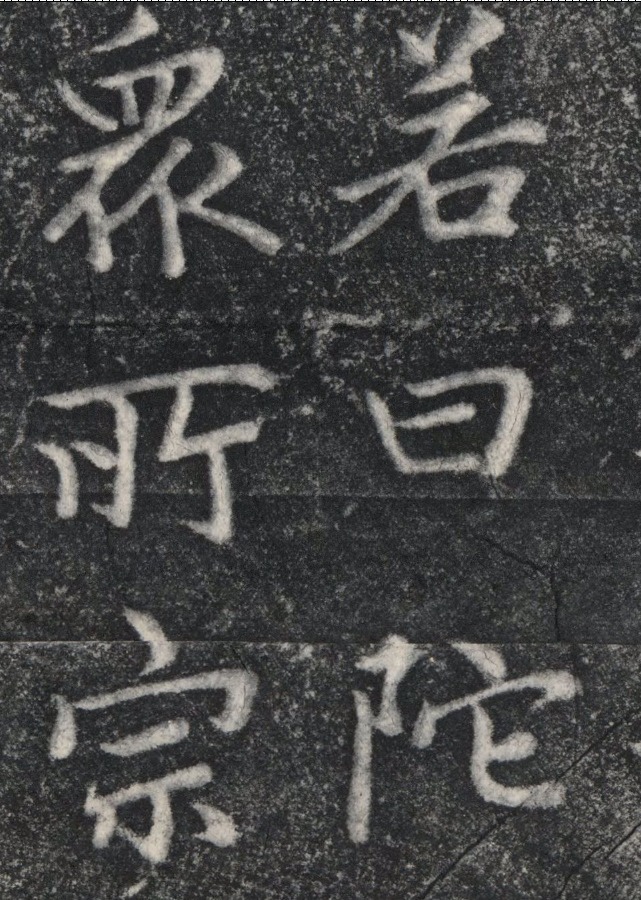 若曰陀
眾所宗